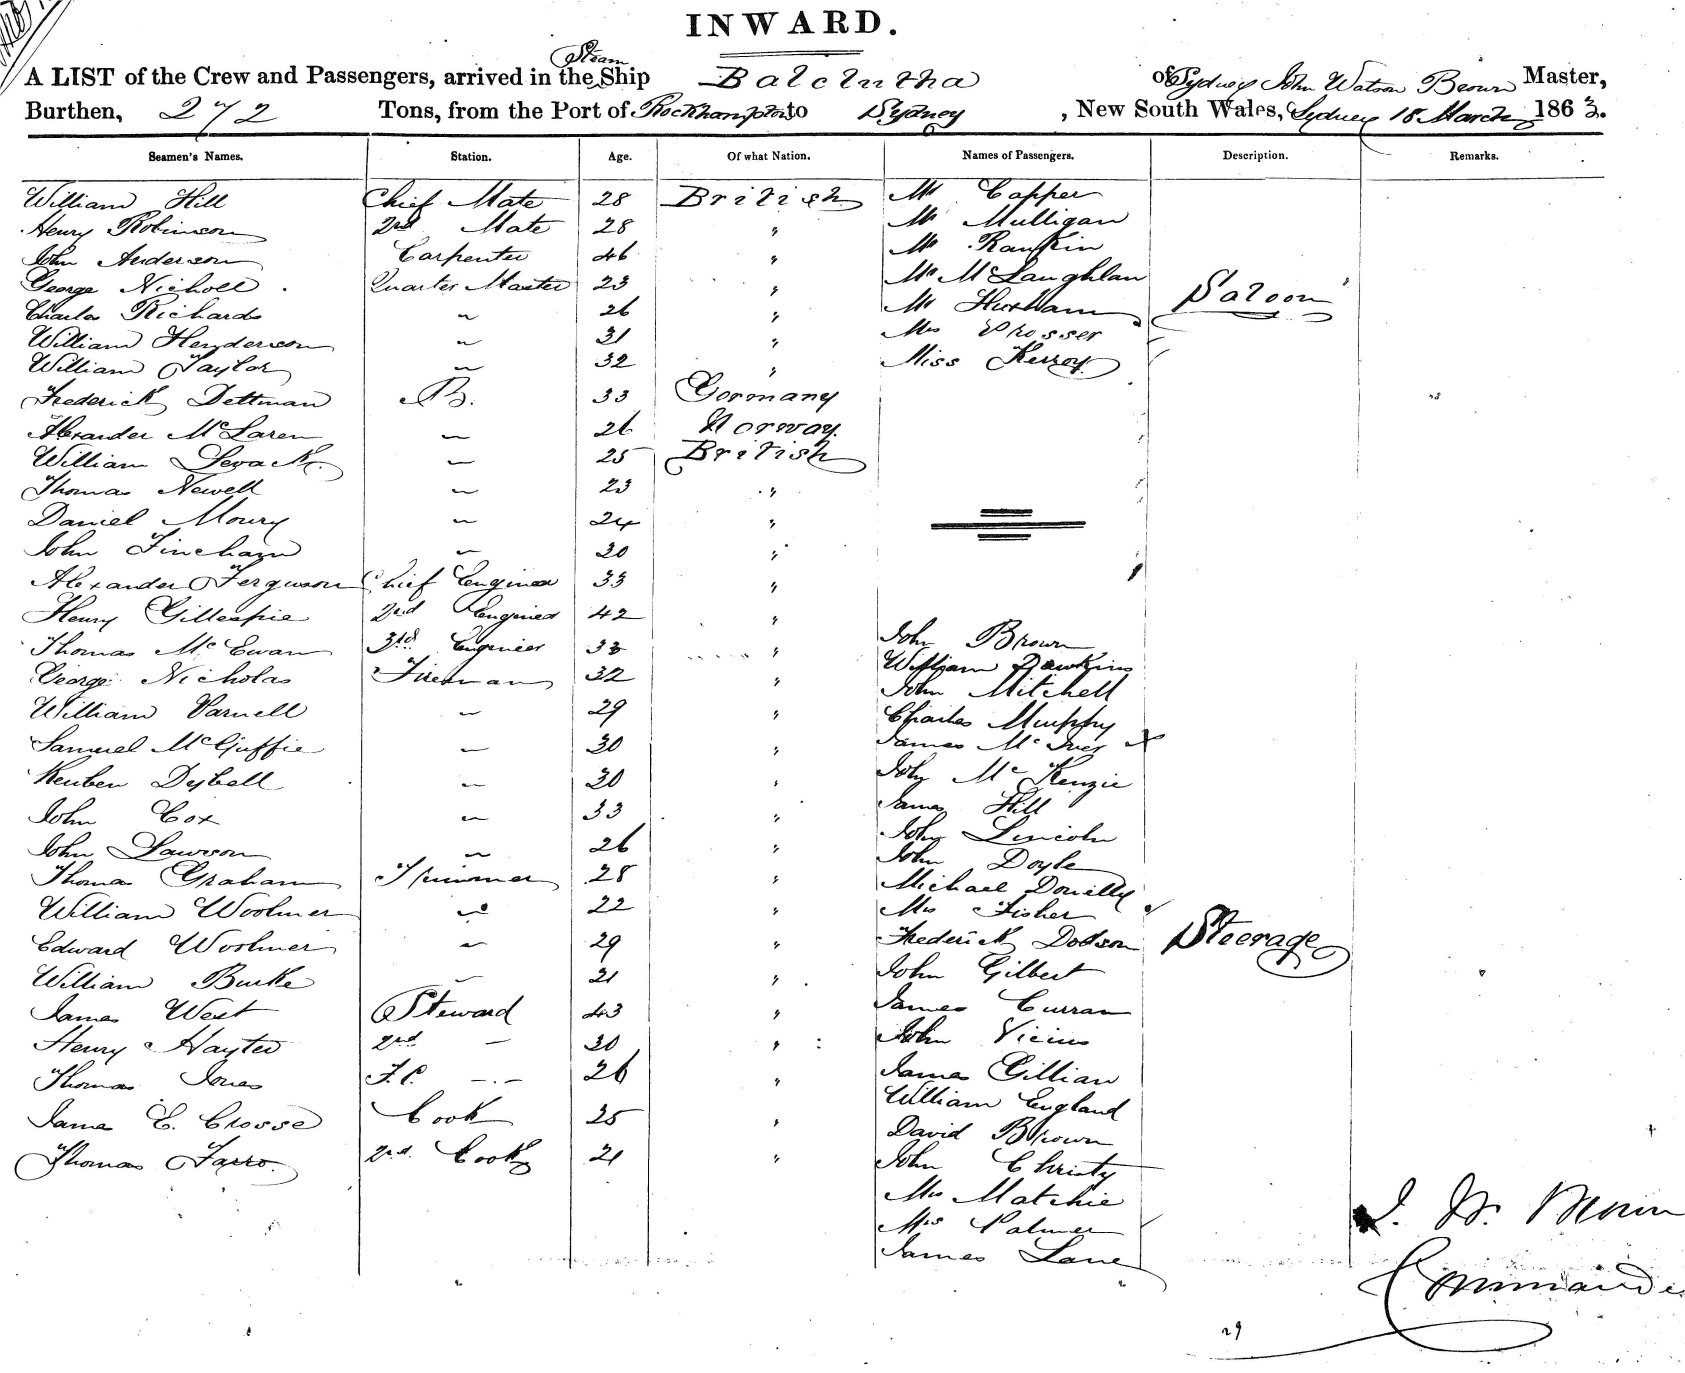 INWARD.
Steam
A LIST of the Crew and Passengers, arrived in the Ship Balclutha of Sydney John Watson Brown Master,
Burthen, 272 Tons, from the Port of Rockhampton to Sydney , New South Wales, Sydney 18 March 1863.
Seamen's Names. Station. Age. Of what Nation. Names of Passengers. Description. Remarks.
William Hill Chief Mate 28 British Mr Capper
Henry Robinson 2nd Mate 28 " Mr Mulligan
John Anderson Carpenter 46 " Mr Rankin
George Nicholl Quarter Master 23 " Mr McLaughlan
Charles Richards " 26 " Mr Huxham Saloon
William Henderson " 31 " Mrs Prosser
William Taylor " 32 " Miss
Frederick Dettman A.B. 33 Germany
Alexander McLaren " 26 Norway
William Levack " 25 British
Thomas Newell " 23 "
Daniel Moury " 24 "
John Fincham " 20 "
Alexander Ferguson Chief Engineer 33 "
Henry Gillespie 2nd Engineer 42 "
John Brown
Thomas McEwan 3rd Engineer 33 "
William Dawkins
George Nicholas Fireman 32 "
John Mitchell
William Varnell " 29 "
Charles Murphy
Samuel McGuffie " 30 " James McIver
Reuben Dybell " 30 " John McKenzie
James Hill
John Cox " 33 "
John Lincoln
John Lawson " 26 "
John Doyle
Thomas Graham Trimmer 28 "
Michael Donelly
William Woolmer " 22 " Mrs Fisher
Edward Woolmer " 29 " Frederick Dodson Steerage
William Burke " 21 " John Gilbert
James West Steward 43 " James Curran
Henry Hayter 2nd " 30 " John
Thomas Jones F.C. " 26 " James Gillian
William England
James E. Crosse Cook 25 "
David Brown
Thomas Farro. 2nd. Cook 21 " John Christy
Mrs Matchie
Mrs Palmer
James Lane
J. W. Brown
Commander
29